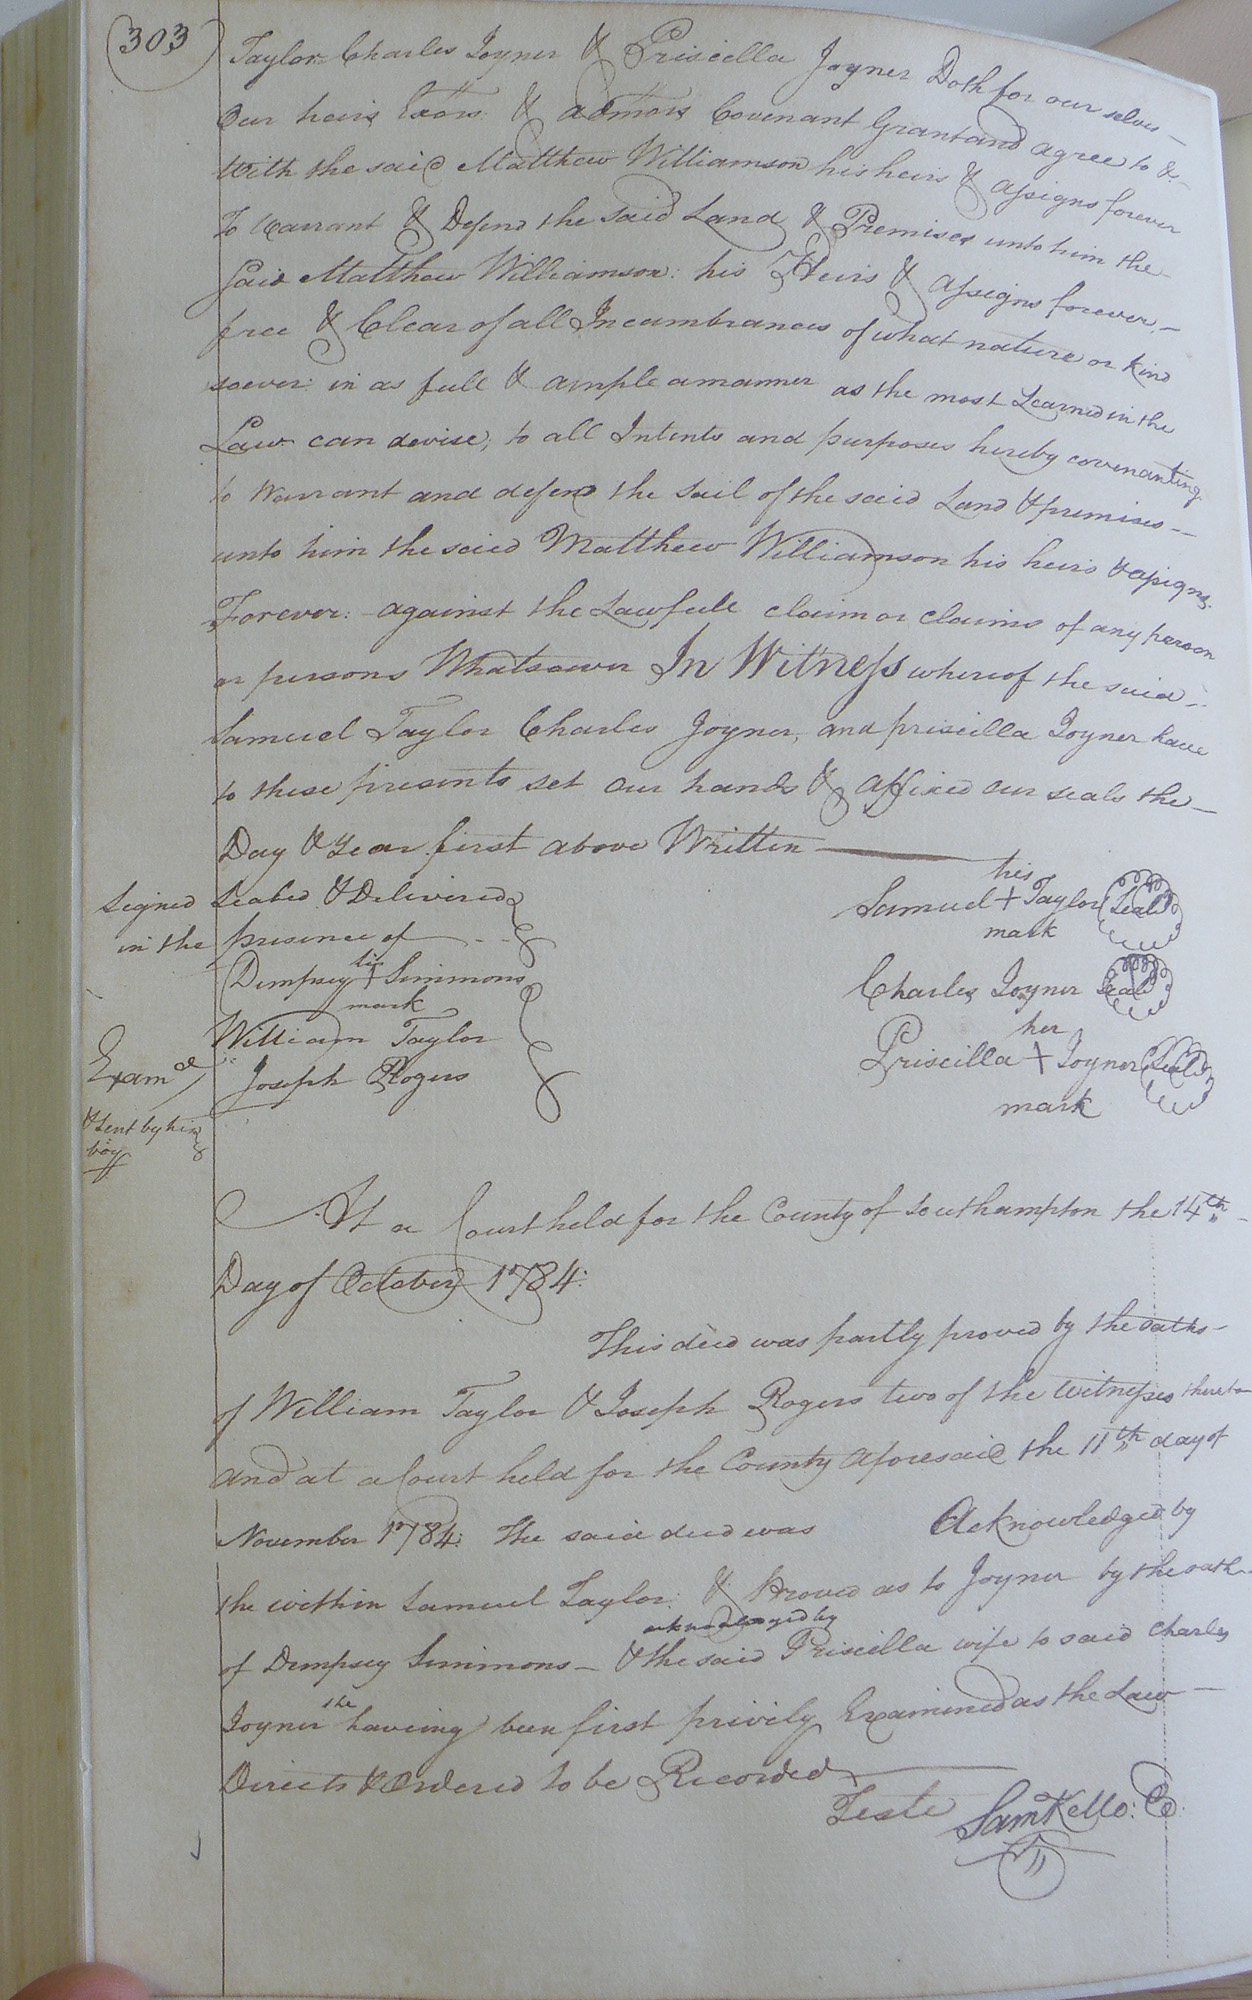 303
Taylor Charles Joyner & Priscilla Joyner Doth for our selves
Our heirs Exors. & admors Covenant Grant and agree to &
With the said Matthew Williamson his heirs & assigns forever
To Warrant & Defend the said Land & Premises unto him the
said Matthew Williamson: his Heirs & assigns forever.
free & Clear of all Incumbrances of what nature or kind
soever: in as full & ample a manner as the most Learned in the
Law can devise; to all Intents and purposes hereby covenanting
to Warrant and defend the sail of the said Land & premises
unto him the said Matthew Williamson his heirs & assigns.
Forever: against the Lawfull claim or claims of any person
or persons Whatsoever In Witness whereof the said
Samuel Taylor Charles Joyner, and priscilla Joyner have
to these presents set our hands & affixed our seals the
Day & Year first above Written
Signed Sealed & Delivered
in the presence of
Dempsey his + Simmons
mark
William Taylor
Joseph Rogers
his
Samuel + Taylor Seal
mark
Charles Joyner Seal
her
Priscilla + Joyner Seal
mark
Examd
& sent by his
boy
At a Court held for the County of Southampton the 14th
Day of October 1784:
This deed was partly proved by the oaths
of William Taylor & Joseph Rogers two of the witnesses thereto
and at a Court held for the County aforesaid the 11th day of
November 1784: The said deed was Acknowledged by
the within Samuel Taylor: & Proved as to Joyner by the oath
of Dempsey Simmons & acknowledged by the said Priscilla wife to said Charles
Joyner she having been first privily Examined as the Law
Directs & Ordered to be Recorded
Teste Saml Kello: C